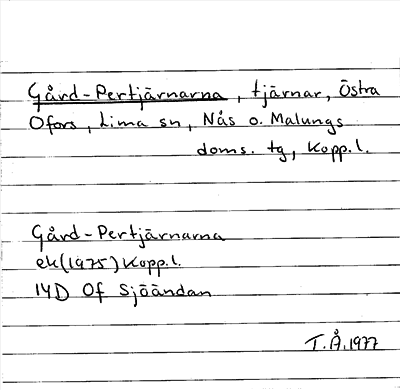 Gård-Pertjärnarna, tjärnar, Östra
Ofors, Lima sn, Nås o. Malungs
doms. tg, Kopp.l.
Gård-Pertjärnarna
ek(1975) Kopp.l.
14D Of Sjöändan
T.Å. 1977